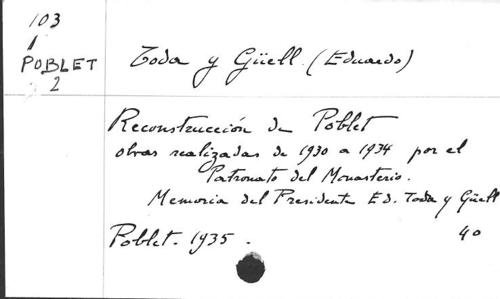 103
POBLET
2
Toda y Güell. (Eduardo)
Reconstrucción de Poblet
obras realizadas de 1930 a 1934 por el
Patronato del Monasterio.
Memoria del Presidente Ed. Toda y Güell
Poblet. 1935.
4º